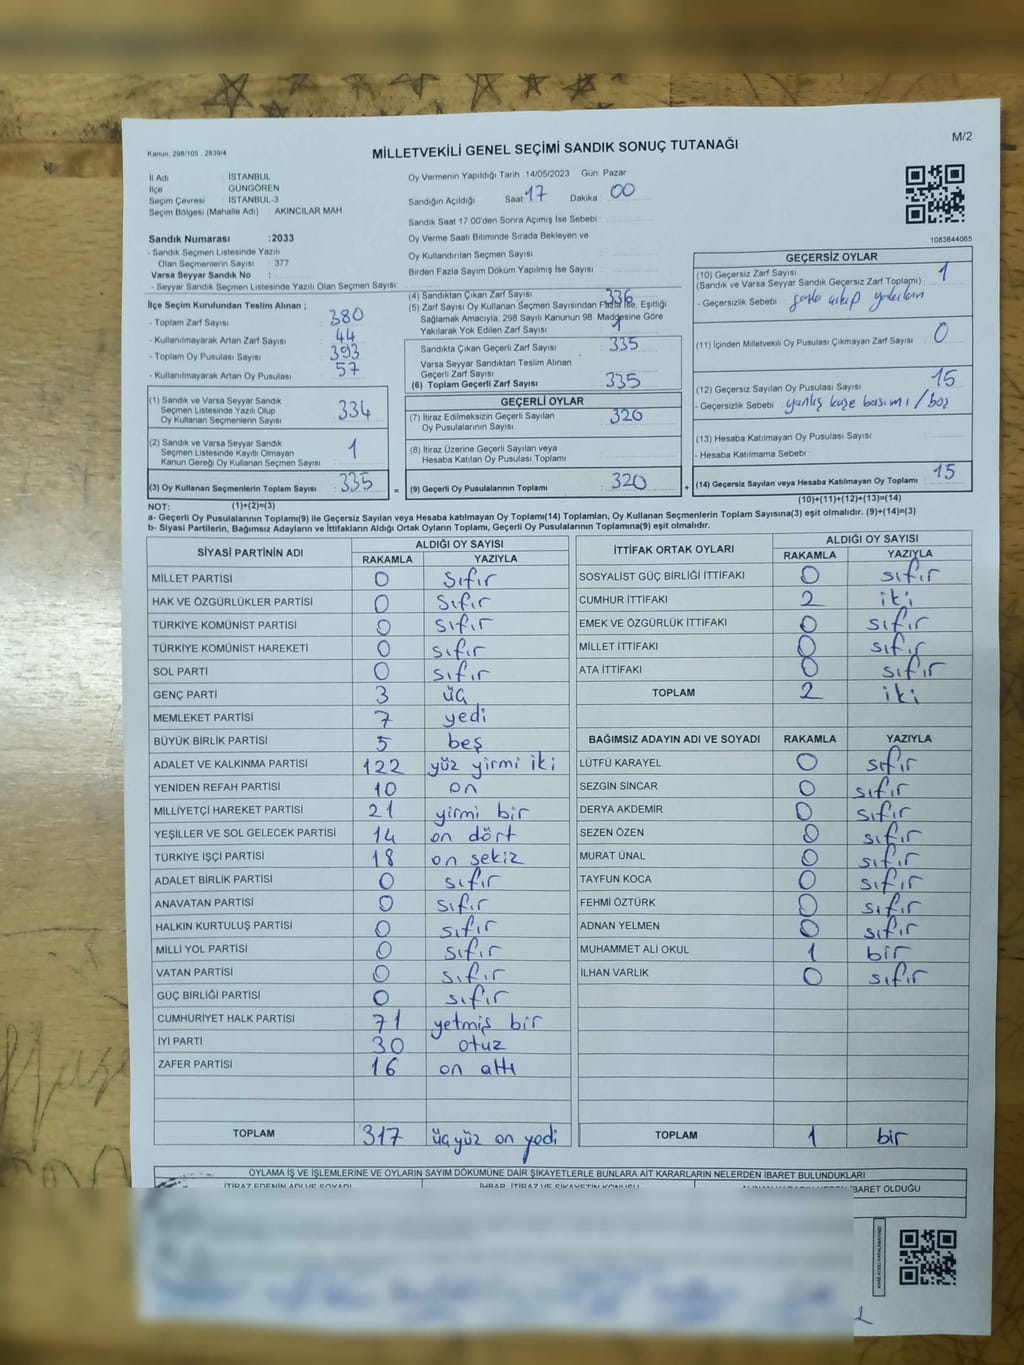 Kanun, 298/105 . 2839/4
MİLLETVEKİLİ GENEL SEÇİMİ SANDIK SONUÇ TUTANAĞI
M/2
İl Adı : İSTANBUL
İlçe : GÜNGÖREN
Seçim Çevresi : İSTANBUL-3
Seçim Bölgesi (Mahalle Adı) : AKINCILAR MAH
Sandık Numarası :2033
- Sandık Seçmen Listesinde Yazılı
Olan Seçmenlerin Sayısı : 377
Varsa Seyyar Sandık No :
- Seyyar Sandık Seçmen Listesinde Yazılı Olan Seçmen Sayısı:
Oy Vermenin Yapıldığı Tarih :14/05/2023 Gün: Pazar
Sandığın Açıldığı Saat 17 Dakika 00
Sandık Saat 17:00'den Sonra Açımış İse Sebebi :
Oy Verme Saati Bitiminde Sırada Bekleyen ve
Oy Kullandırılan Seçmen Sayısı :
Birden Fazla Sayım Döküm Yapılmış İse Sayısı :
1083644065
İlçe Seçim Kurulundan Teslim Alınan ;
- Toplam Zarf Sayısı : 380
- Kullanılmayarak Artan Zarf Sayısı : 44
- Toplam Oy Pusulası Sayısı : 393
- Kullanılmayarak Artan Oy Pusulası : 57
(1) Sandık ve Varsa Seyyar Sandık
Seçmen Listesinde Yazılı Olup
Oy Kullanan Seçmenlerin Sayısı : 334
(2) Sandık ve Varsa Seyyar Sandık
Seçmen Listesinde Kayıtlı Olmayan
Kanun Gereği Oy Kullanan Seçmen Sayısı : 1
(3) Oy Kullanan Seçmenlerin Toplam Sayısı : 335
(4) Sandıktan Çıkan Zarf Sayısı : 336
(5) Zarf Sayısı Oy Kullanan Seçmen Sayısından Fazla İse, Eşitliği
Sağlamak Amacıyla, 298 Sayılı Kanunun 98. Maddesine Göre
Yakılarak Yok Edilen Zarf Sayısı : 1
Sandıkta Çıkan Geçerli Zarf Sayısı : 335
Varsa Seyyar Sandıktan Teslim Alınan
Geçerli Zarf Sayısı :
(6) Toplam Geçerli Zarf Sayısı : 335
GEÇERLİ OYLAR
(7) İtiraz Edilmeksizin Geçerli Sayılan
Oy Pusulalarının Sayısı : 320
(8) İtiraz Üzerine Geçerli Sayılan veya
Hesaba Katılan Oy Pusulası Toplamı :
= (9) Geçerli Oy Pusulalarının Toplamı : 320
GEÇERSİZ OYLAR
(10) Geçersiz Zarf Sayısı : 1
(Sandık ve Varsa Seyyar Sandık Geçersiz Zarf Toplamı)
- Geçersizlik Sebebi :
(11) İçinden Milletvekili Oy Pusulası Çıkmayan Zarf Sayısı : 0
(12) Geçersiz Sayılan Oy Pusulası Sayısı : 15
- Geçersizlik Sebebi : yanlış kaşe basımı / boş
(13) Hesaba Katılmayan Oy Pusulası Sayısı :
- Hesaba Katılmama Sebebi :
+ (14) Geçersiz Sayılan veya Hesaba Katılmayan Oy Toplamı : 15
NOT: (1)+(2)=(3)
(10)+(11)+(12)+(13)=(14)
a- Geçerli Oy Pusulalarının Toplamı(9) ile Geçersiz Sayılan veya Hesaba katılmayan Oy Toplamı(14) Toplamları, Oy Kullanan Seçmenlerin Toplam Sayısına(3) eşit olmalıdır. (9)+(14)=(3)
b- Siyasi Partilerin, Bağımsız Adayların ve İttifakların Aldığı Ortak Oyların Toplamı, Geçerli Oy Pusulalarının Toplamına(9) eşit olmalıdır.
SİYASİ PARTİNİN ADI ALDIĞI OY SAYISI
RAKAMLA YAZIYLA
MİLLET PARTİSİ 0 sıfır
HAK VE ÖZGÜRLÜKLER PARTİSİ 0 sıfır
TÜRKİYE KOMÜNİST PARTİSİ 0 sıfır
TÜRKİYE KOMÜNİST HAREKETİ 0 sıfır
SOL PARTİ 0 sıfır
GENÇ PARTİ 3 üç
MEMLEKET PARTİSİ 7 yedi
BÜYÜK BİRLİK PARTİSİ 5 beş
ADALET VE KALKINMA PARTİSİ 122 yüz yirmi iki
YENİDEN REFAH PARTİSİ 10 on
MİLLİYETÇİ HAREKET PARTİSİ 21 yirmi bir
YEŞİLLER VE SOL GELECEK PARTİSİ 14 on dört
TÜRKİYE İŞÇİ PARTİSİ 18 on sekiz
ADALET BİRLİK PARTİSİ 0 sıfır
ANAVATAN PARTİSİ 0 sıfır
HALKIN KURTULUŞ PARTİSİ 0 sıfır
MİLLİ YOL PARTİSİ 0 sıfır
VATAN PARTİSİ 0 sıfır
GÜÇ BİRLİĞİ PARTİSİ 0 sıfır
CUMHURİYET HALK PARTİSİ 71 yetmiş bir
İYİ PARTİ 30 otuz
ZAFER PARTİSİ 16 on altı
TOPLAM 317 üçyüz on yedi
İTTİFAK ORTAK OYLARI ALDIĞI OY SAYISI
RAKAMLA YAZIYLA
SOSYALİST GÜÇ BİRLİĞİ İTTİFAKI 0 sıfır
CUMHUR İTTİFAKI 2 iki
EMEK VE ÖZGÜRLÜK İTTİFAKI 0 sıfır
MİLLET İTTİFAKI 0 sıfır
ATA İTTİFAKI 0 sıfır
TOPLAM 2 iki
BAĞIMSIZ ADAYIN ADI VE SOYADI RAKAMLA YAZIYLA
LÜTFÜ KARAYEL 0 sıfır
SEZGİN SİNCAR 0 sıfır
DERYA AKDEMİR 0 sıfır
SEZEN ÖZEN 0 sıfır
MURAT ÜNAL 0 sıfır
TAYFUN KOCA 0 sıfır
FEHMİ ÖZTÜRK 0 sıfır
ADNAN YELMEN 0 sıfır
MUHAMMET ALİ OKUL 1 bir
İLHAN VARLIK 0 sıfır
TOPLAM 1 bir
OYLAMA İŞ VE İŞLEMLERİNE VE OYLARIN SAYIM DÖKÜMÜNE DAİR ŞİKAYETLERLE BUNLARA AİT KARARLARIN NELERDEN İBARET BULUNDUKLARI
İTİRAZ EDENİN ADI VE SOYADI İHBAR, İTİRAZ VE ŞİKAYETİN KONUSU İBARET OLDUĞU